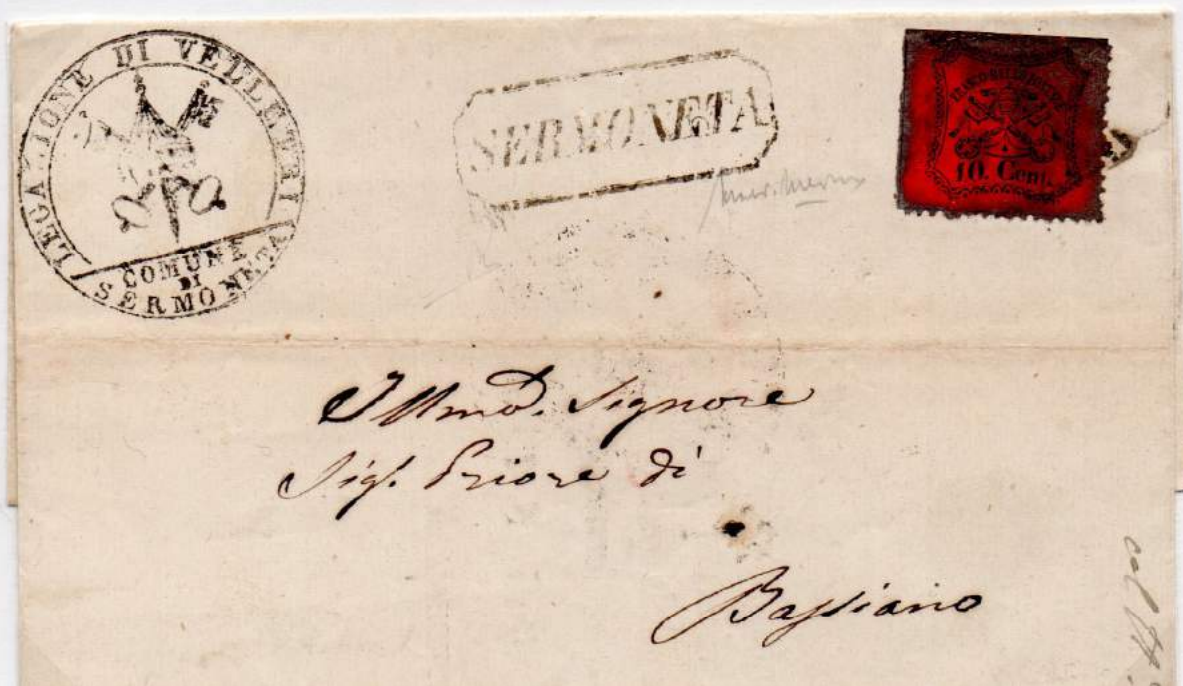 LEGAZIONE DI VELLETRI
COMUNE
DI
SERMONETA
SERMONETA
FRANCO BOLLO POSTALE
10. Cent.
Illmo. Signore
Sigr. Priore di
Bassiano